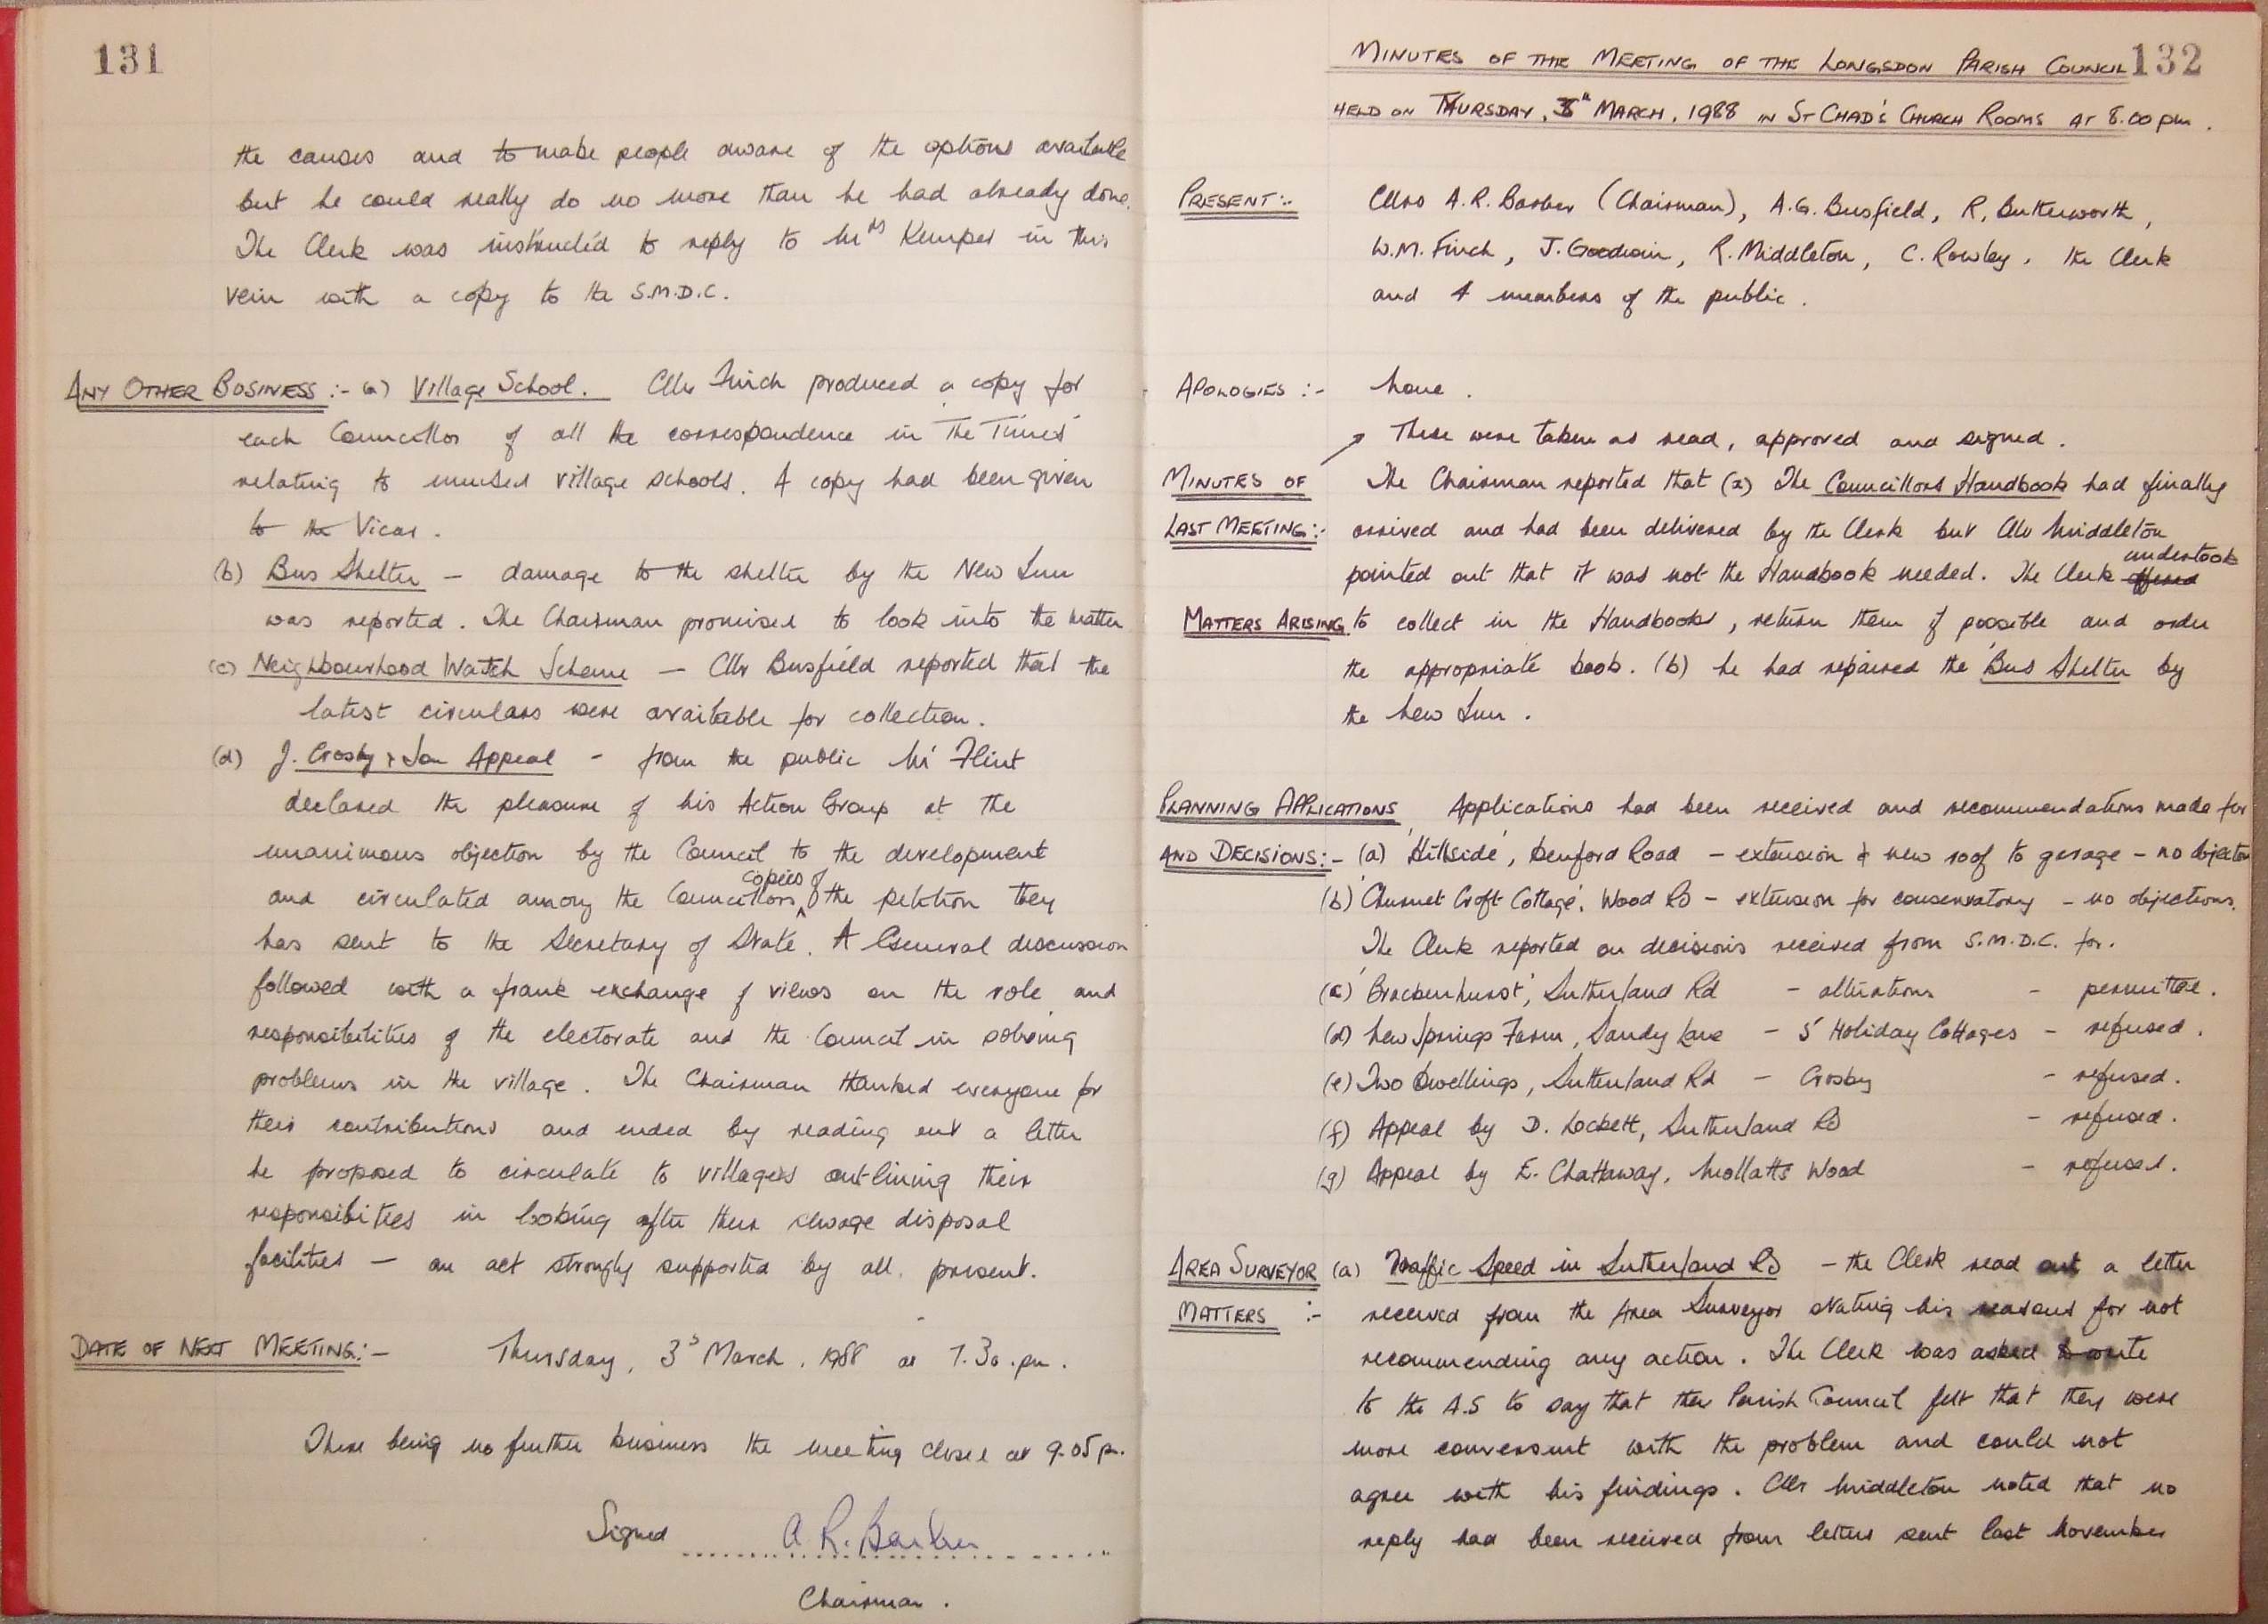 131
the causes and to make people aware of the options available
but he could really do no more than he had already done.
The Clerk was instructed to reply to Mrs Kemper in this
vein with a copy to the S.M.D.C.
ANY OTHER BUSINESS :- (a) Village School. Cllr Finch produced a copy for
each Councillor of all the correspondence in 'The Times'
relating to unused village schools. A copy had been given
to the Vicar.
(b) Bus Shelter - damage to the shelter by the New Inn
was reported. The Chairman promised to look into the matter
(c) Neighbourhood Watch Scheme - Cllr Busfield reported that the
latest circulars were available for collection.
(d) J. Crosby & Son Appeal - from the public Mr Flint
declared the pleasure of his Action Group at the
unanimous objection by the Council to the development
and circulated among the Councillors copies of the petition they
has sent to the Secretary of State. A General discussion
followed with a frank exchange of views on the role and
responsibilities of the electorate and the Council in solving
problems in the village. The Chairman thanked everyone for
their contributions and ended by reading out a letter
he proposed to circulate to villagers outlining their
responsibilities in looking after their sewage disposal
facilities - an act strongly supported by all present.
DATE OF NEXT MEETING:- Thursday, 3rd March, 1988 at 7.30.pm.
There being no further business the meeting closed at 9.05 pm.
Signed A R. Barber
Chairman.
MINUTES OF THE MEETING OF THE LONGSDON PARISH COUNCIL 132
HELD ON THURSDAY, 3rd MARCH, 1988 IN ST CHAD'S CHURCH ROOMS AT 8.00 pm.
PRESENT :- Cllrs A.R. Barber (Chairman), A.G. Busfield, R. Butterworth,
W.M. Finch, J. Goodwin, R. Middleton, C. Rowley, the Clerk
and 4 members of the public.
APOLOGIES :- None.
These were taken as read, approved and signed.
MINUTES OF The Chairman reported that (a) The Councillors Handbook had finally
LAST MEETING :- arrived and had been delivered by the Clerk but Cllr Middleton
pointed out that it was not the Handbook needed. The Clerk offered undertook
MATTERS ARISING to collect in the Handbooks, return them if possible and order
the appropriate book. (b) he had repaired the Bus Shelter by
the New Inn.
PLANNING APPLICATIONS Applications had been received and recommendations made for
AND DECISIONS :- (a) 'Hillside', Denford Road - extension & new roof to garage - no objection
(b) 'Churnet Croft Cottage', Wood Rd - extension for conservatory - no objections.
The Clerk reported on decisions received from S.M.D.C. for.
(c) 'Brackenhurst', Sutherland Rd - alterations - permitted.
(d) New Springs Farm, Sandy Lane - 5 Holiday Cottages - refused.
(e) Two Dwellings, Sutherland Rd - Crosby - refused.
(f) Appeal by D. Lockett, Sutherland Rd - refused.
(g) Appeal by E. Chattaway, Mollatts Wood - refused.
AREA SURVEYOR (a) Traffic Speed in Sutherland Rd - the Clerk read out a letter
MATTERS :- received from the Area Surveyor stating his reasons for not
recommending any action. The Clerk was asked to write
to the A.S to say that the Parish Council felt that they were
more conversant with the problem and could not
agree with his findings. Cllr Middleton noted that no
reply had been received from letters sent last November